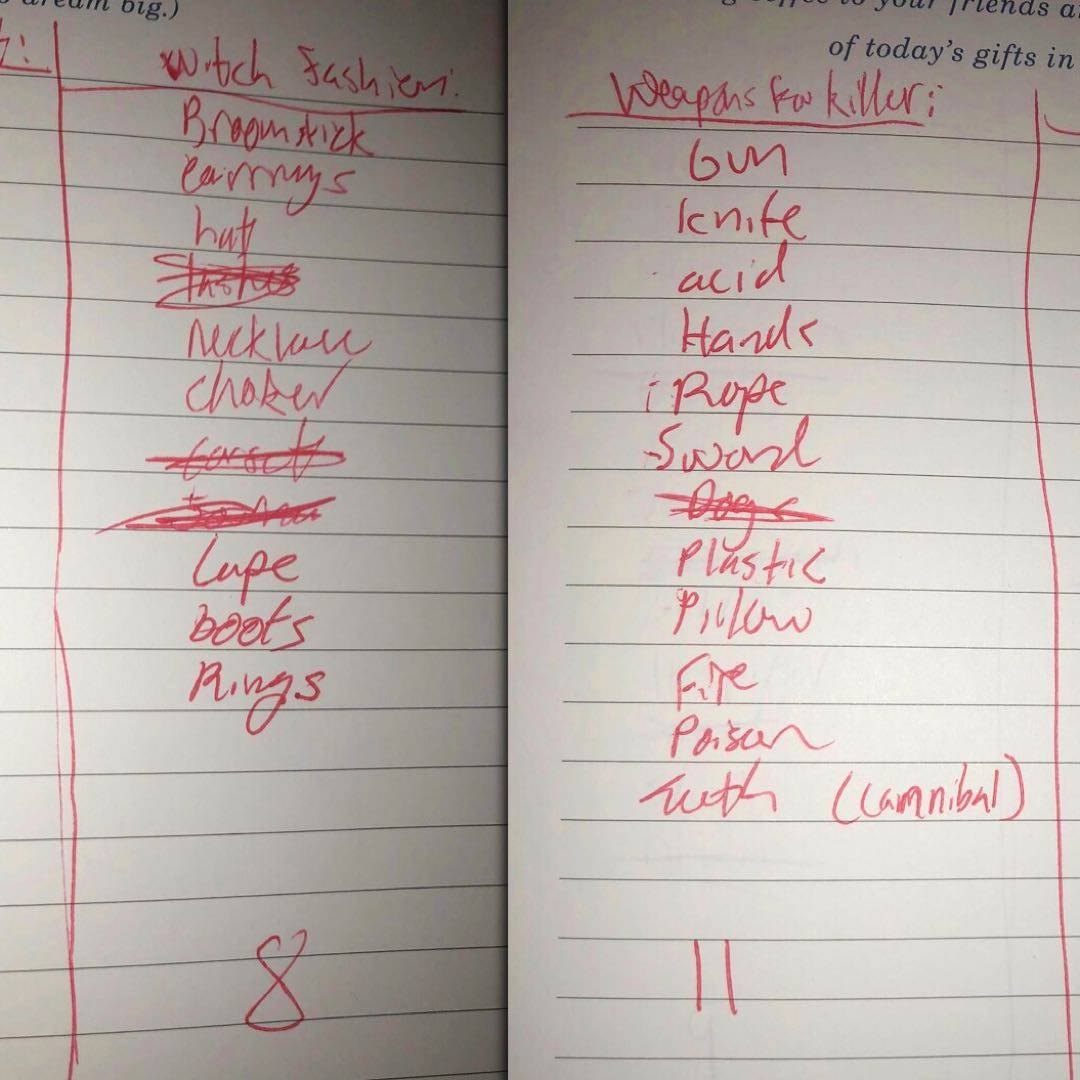 dream big.)
Witch Fashion:
Broomstick
earrings
hat
Necklace
Choker
Corsett
Cape
Boots
Rings
8
to your friends
of today's gifts in
Weapons for killer:
Gun
Knife
acid
Hands
Rope
Sword
Dogs
Plastic
Pillow
Fire
Poison
Teeth (Cannibal)
11